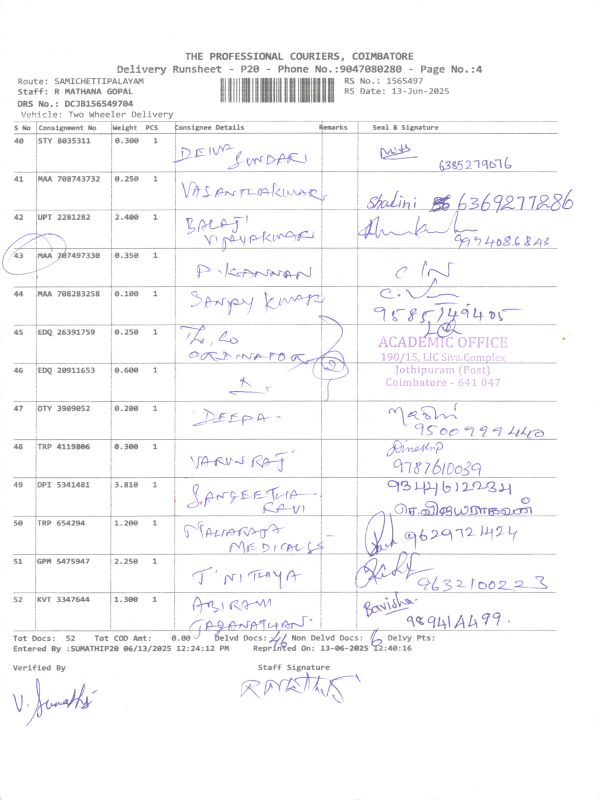 THE PROFESSIONAL COURIERS, COIMBATORE
Delivery Runsheet - P20 - Phone No.:9047080280 - Page No.:4
Route: SAMICHETTIPALAYAM RS No.: 1565497
Staff: R MATHANA GOPAL RS Date: 13-Jun-2025
DRS No.: DCJB156549704
Vehicle: Two Wheeler Delivery
S No Consignment No Weight PCS Consignee Details Remarks Seal & Signature
40 STY 8035311 0.300 1 DEIVA SUNDARI 6385279076
41 MAA 708743732 0.250 1 VASANTHAKUMAR Shalini 6369277286
42 UPT 2281282 2.400 1 BALAJI VIJAYAKUMAR 9994086843
43 MAA 707497330 0.350 1 P. KANNAN C/N
44 MAA 708283258 0.100 1 SANJAY KUMAR C.V 9585749405
45 EDQ 26391759 0.250 1 Th. Co ORDINATOR
ACADEMIC OFFICE
190/15, LIC Siva.Complex
Jothipuram (Post)
Coimbatore - 641 047
46 EDQ 20911653 0.600 1 2
47 OTY 3909052 0.200 1 DEEPA. 9500999440
48 TRP 4119806 0.300 1 VARUN RAJ Dinesh 9787610039
49 DPI 5341481 3.810 1 SANGEETHA RAVI 9344612234
செ.விஜயராகவன்
50 TRP 654294 1.200 1 MAHARAJA MEDICALSS 9629721424
51 GPM 5475947 2.250 1 J. NITHYA 9632100223
52 KVT 3347644 1.300 1 ABIRAMI JAGANATHAN. Bavisha. 989414499.
Tot Docs: 52 Tot COD Amt: 0.00 Delvd Docs: 46 Non Delvd Docs: 6 Delvy Pts:
Entered By :SUMATHIP20 06/13/2025 12:24:12 PM Reprinted On: 13-06-2025 12:40:16
Verified By Staff Signature
V. Sumathi